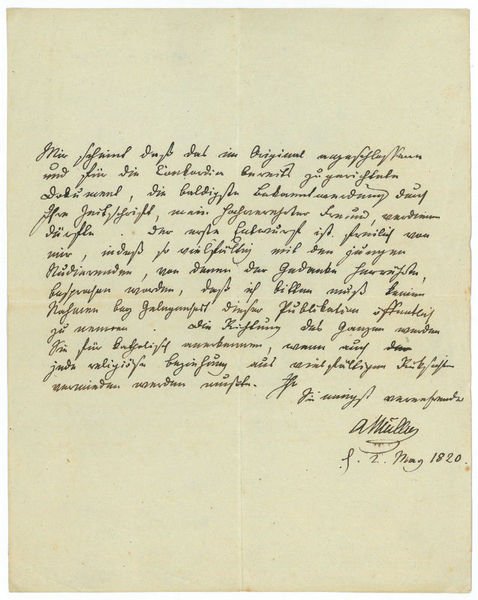 Mir scheint daß das im Original angeschlossene
und für die Concordia bereits zugerichtete
Dokument, die baldigste Bekanntwerdung durch
Ihre Zeitschrift, mein hochverehrter Freund, verdienen
dürfte. der erste Entwurf ist freilich von
mir, indeß so vielfältig mit den jungen
Studierenden, von denen der Gedanke herrührte,
besprochen worden, daß ich bitten muß keinen
Nahmen bey Gelegenheit dieser Publikation öffentlich
zu nennen. Die Richtung des Ganzen werden
Sie für katholisch anerkennen, wenn auch
jede religiöse Beziehung aus vielfältigen Rücksichten
vermieden werden mußte. Ihr
Sie innigst verehrender
AMüller
2. May 1820.